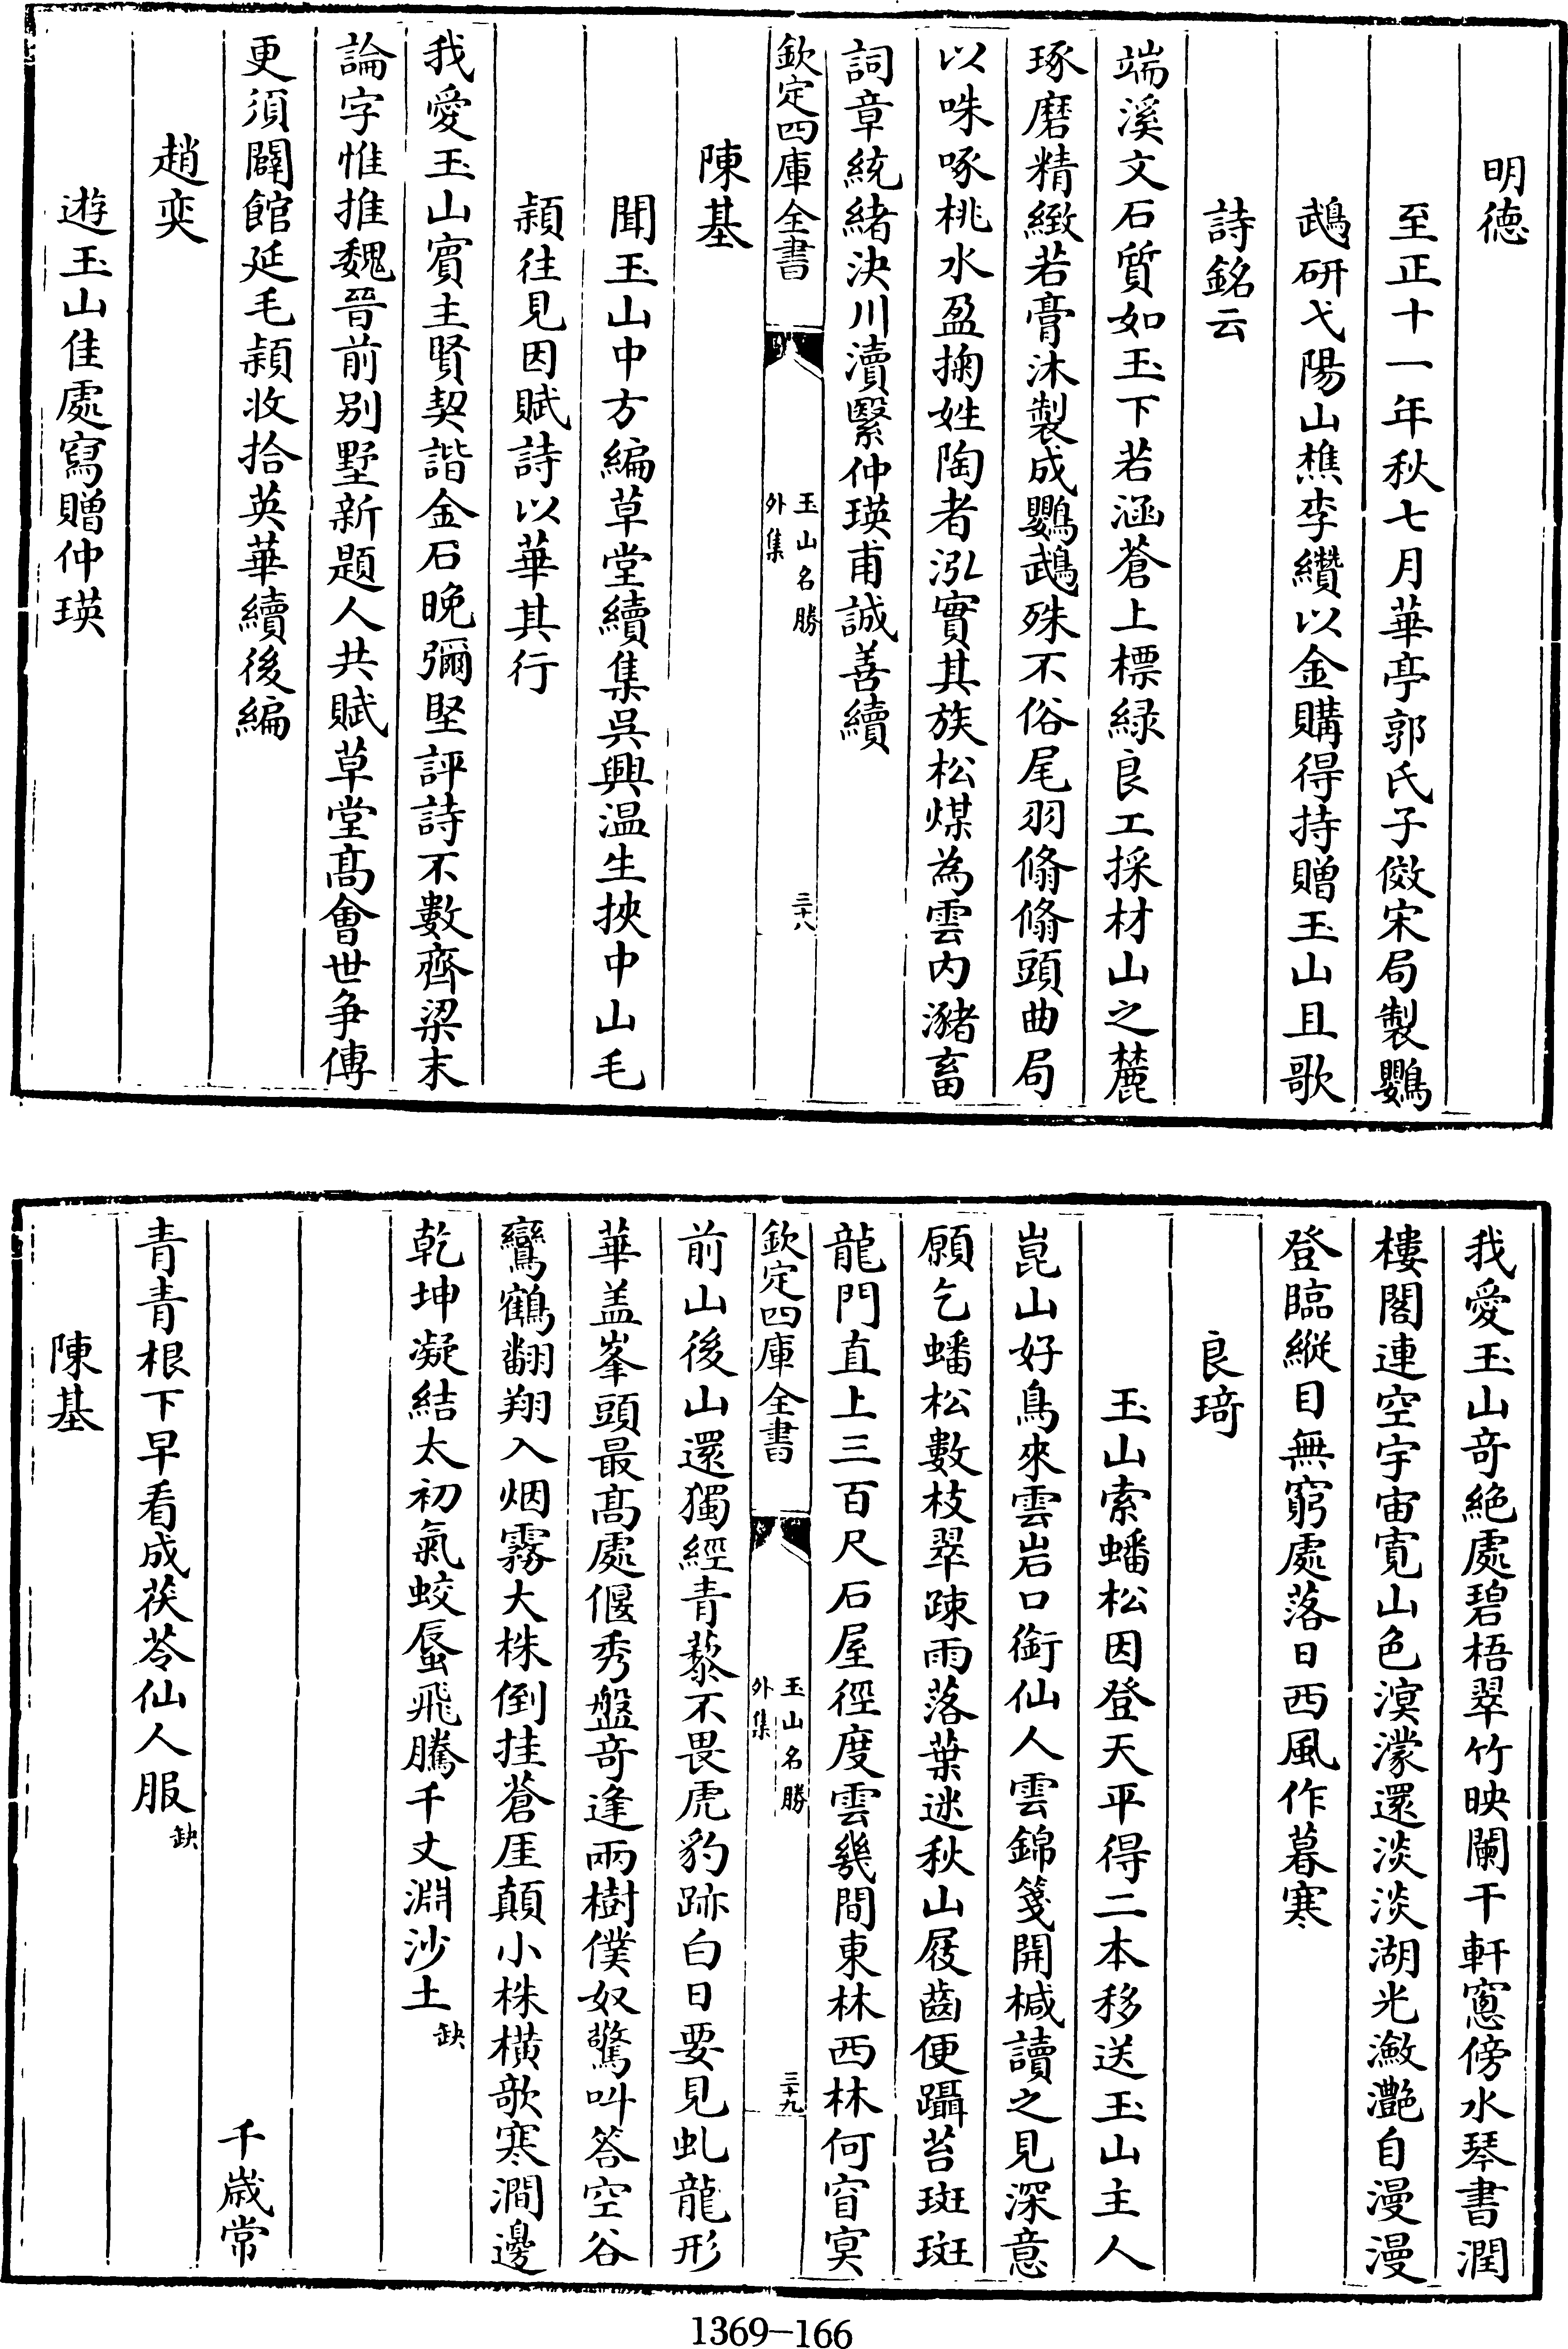 明德
至正十一年秋七月華亭郭氏子傚宋局製鸚
鵡研弋陽山樵李纘以金購得持贈玉山且歌
詩銘云
端溪文石質如玉下若涵蒼上標緑良工採材山之麓
琢磨精緻若膏沐製成鸚鵡殊不俗尾羽翛翛頭曲局
以咮啄桃水盈掬姓陶者泓實其族松煤為雲内瀦畜
詞章統緒決川瀆繄仲瑛甫誠善續
欽定四庫全書
玉山名勝
外集
三十八
陳基
聞玉山中方編草堂續集吳興温生挾中山毛
頴往見因賦詩以華其行
我愛玉山賓主賢契諧金石晚彌堅評詩不數齊梁末
論字惟推魏晉前别墅新題人共賦草堂髙會世争傳
更須闢館延毛頴收拾英華續後編
趙奕
遊玉山佳處寫贈仲瑛
我愛玉山竒絶處碧梧翠竹映闌干軒窻傍水琴書潤
樓閣連空宇宙寛山色溟濛還淡淡湖光瀲灔自漫漫
登臨縱目無窮處落日西風作暮寒
良琦
玉山索蟠松因登天平得二本移送玉山主人
崑山好鳥來雲岩口銜仙人雲錦箋開椷讀之見深意
願乞蟠松數枝翠踈雨落葉迷秋山屐齒便躡苔斑斑
龍門直上三百尺石屋徑度雲幾間東林西林何窅㝠
欽定四庫全書
玉山名勝
外集
三十九
前山後山還獨經青藜不畏虎豹跡白日要見虬龍形
華盖峯頭最髙處偃秀盤竒逢兩樹僕奴驚叫答空谷
鸞鶴翻翔入烟霧大株倒挂蒼厓顛小株横欹寒澗邊
乾坤凝結太初氣蛟蜃飛騰千丈淵沙土缺
千嵗常
青青根下早看成茯苓仙人服缺
陳基
1369-166